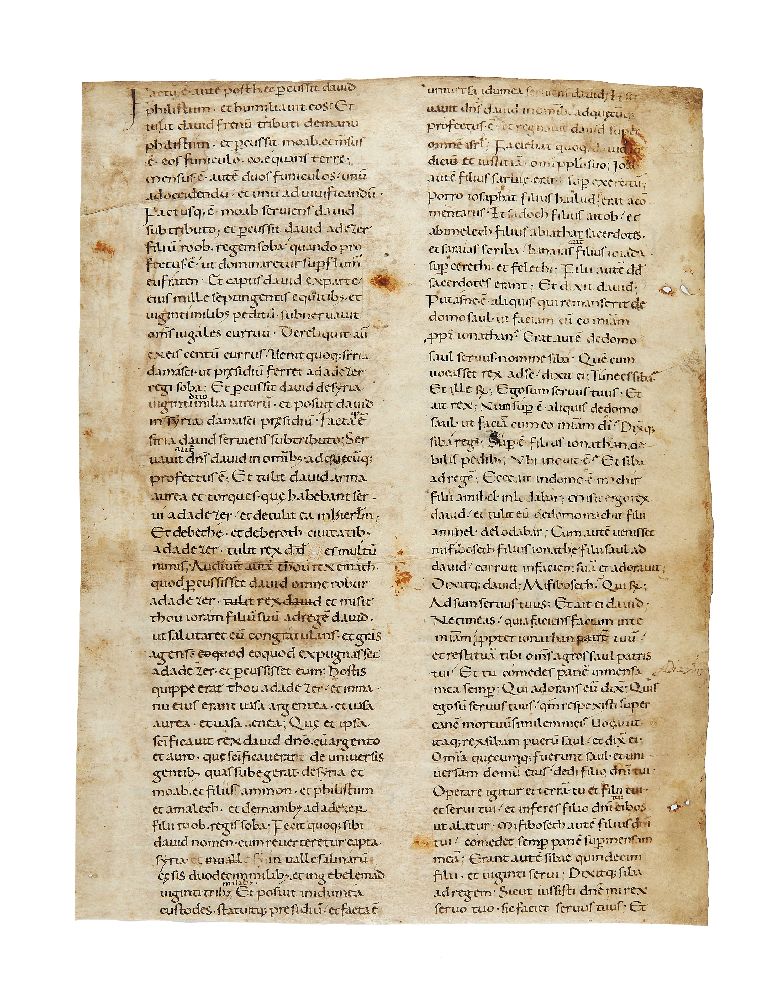 Factū ē autē post hec pcussit david
philistiim · et humiliavit eos · Et
tulit david frenū tributi demanu
philistiim · et pcussit moab · et mensus
ē · eos funiculo · coequans terre ;
mensus · ē · autē duos funiculos · unū
ad occidendū · et unū ad vivificandū ·
Factusq; · ē · moab serviens david
sub tributo ; et pcussit david adadezer
filiū roob · regem soba · quando pro
fectus · ē · ut dominaretur sup flumē
eufraten · Et captis david ex parte
eius mille septingentis equitib; · et
viginti milib; peditū · subnervavit
om̄s iugales curruū · Dereliquit aū
ex eis centū currus · Venit quoq; siria
damasci · ut presidiū ferret adadezer
regi soba · Et pcussit david de syria
viginti duo milia virorū · et posuit david
in syria damasci presidiū · Facta · ē
siria david serviens sub tributo · Ser
vavit autē dn̄s david in omib; ad quecūq;
profectus · ē · Et tulit david arma
aurea et torques · que habebant ser
vi adadezer · et detulit ea in hierlm̄ ;
Et debethe · et deberoth civitatib;
adadezer · tulit rex dd̄ es multū
nimis ; Audivit autē thou rex emath ·
quod pcussisset david omne robur
adadezer · tulit rex david et misit
thou ioram filiū suū ad regē david ·
ut salutaret eū congratulans · et gr̄is
agens · eo quod eo quod expugnasset
adadezer · et pcussisset eum ; hostis
quippe erat thou adadezer · et in ma
nu eius erant vasa argentea · et vasa
aurea · et vasa aenea ; Que et ipsa
sc̄ificavit rex david dn̄o · cū argento
et auro · que sc̄ificaverat de universis
gentib; quas subegerat · de syria et
moab · et filiis ammon · et philistiim
et amalech · et de manub; adadezer
filii roob · regis soba · Fecit quoq; sibi
david nomen · cum reverteretur capta
syria in valle salinarū
cęsis duodecim milib; · et in gebelemad
viginti trib; milib; · Et posuit in idumea
custodes · statuitq; presidiū · et facta ē
universa idumea serviens david · Et ser
vavit dn̄s david in omib; ad quecūq;
profectus · ē · et regnavit david super
omnē isrl̄ ; Faciebat quoq; david iu
diciū et iustitiā · omi pplo suo ; Ioab
autē filius sarvie erat · sup exercitū ·
Porro iosaphat filius hailud · erat a co
mentariis · Et sadoch filius aitob · et
abimelech filius abiathar sacerdotes ·
et saraias scriba · banaias autē filius ioiada ·
sup cerethi · et felethi · Filii autē dd̄
sacerdotes erant ; Et dixit david ;
Putasne · ē · aliquis qui remanserit de
domo saul · ut faciam cū eo mīam
ppt̄ ionathan ? Erat autē de domo
saul servus nomine siba · Quē cum
vocasset rex ad se · dixit ei ; Tune es siba ?
Et ille R̄ ; Ego sum servus tuus ; Et
ait rex ; Nūm sup ē aliquis de domo
saul · ut faciā cum eo mīam dī ? Dixitq;
siba regi ; Sup · ē · filius ionathan · de
bilis pedib; ; Ubi inquit · ē ? Et siba
ad regē ; Ecce ait in domo · ē · machir
filii amihel in lodabar ; Misit ergo rex
david · et tulit eū de domo machir filii
amihel · de lodabar ; Cum autē venisset
mifiboseth filius ionathe filii saul ad
david · corruit in faciem suā et adoravit ;
Dixitq; david ; Mifiboseth · Qui R̄ ;
Adsum servus tuus ; Et ait ei david ·
Ne timeas · quia faciens faciam in te
mīam ppter ionathan patrē tuū ·
et restituā tibi om̄s agros saul patris
tui · Et tu comedes panē in mensa
mea semp ; Qui adorans eū dix̄ ; Quis
ego sū servus tuus · qm̄ respexisti super
canē mortuū similem mei ; Vocavit
itaq; rex sibam puerū saul · et dix̄ ei ·
Om̄ia quecunq; fuerunt saul · et uni
versam domū eius · dedi filio dn̄i tui ·
Operare igitur ei terrā · tu et filii tui ·
et servi tui · et inferes filio dn̄i tui cibos ·
ut alatur · mifiboseth autē filius dn̄i
tui · comedet semp panē sup mensam
meā ; Erant autē sibae quindecim
filii · et viginti servi ; Dixitq; siba
ad regem ; Sicut iussisti dn̄e mi rex
servo tuo · sic faciet servus tuus · Et